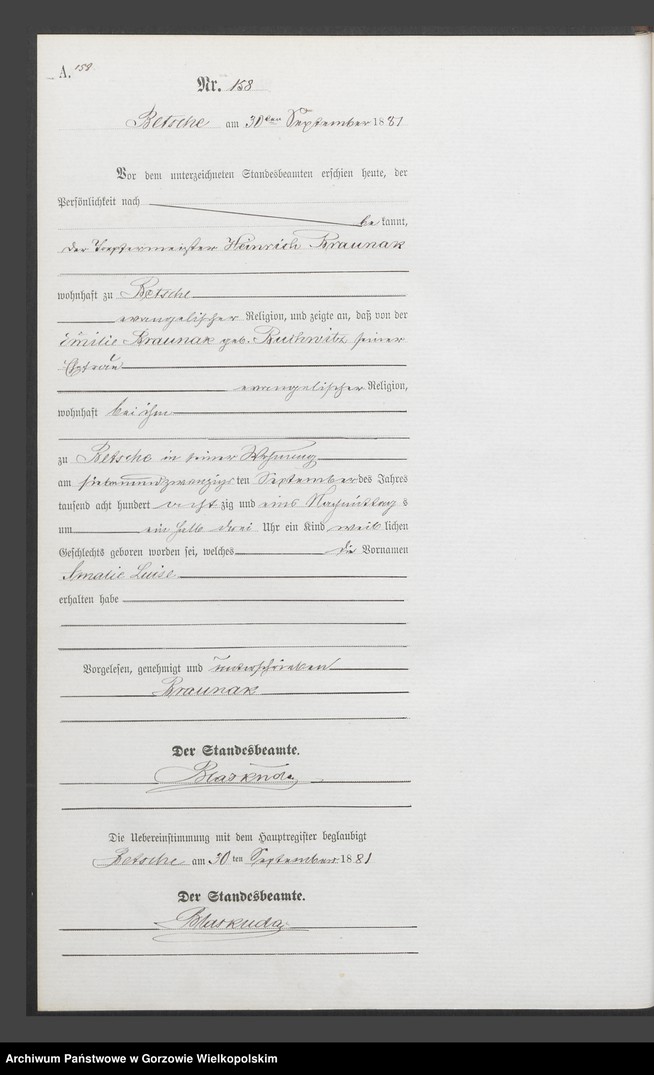 A. 158.
Nr. 158
Betsche am 30ten September 1881
Vor dem unterzeichneten Standesbeamten erschien heute, der
Persönlichkeit nach
be kannt,
der Töpfermeister Heinrich Braunak
wohnhaft zu Betsche
evangelischer Religion, und zeigte an, daß von der
Emilie Braunak geb. seiner
Ehefrau
evangelischer Religion,
wohnhaft bei ihm
zu Betsche in seiner Wohnung
am siebenundzwanzigsten September des Jahres
tausend acht hundert achtzig und eins Nachmittags
um ein halb drei Uhr ein Kind weiblichen
Geschlechts geboren worden sei, welches die Vornamen
Amalie Luise
erhalten habe
Vorgelesen, genehmigt und unterschrieben
Braunak
Der Standesbeamte.
Blaskuda
Die Uebereinstimmung mit dem Hauptregister beglaubigt
Betsche am 30 ten September 1881
Der Standesbeamte.
Blaskuda
Archiwum Państwowe w Gorzowie Wielkopolskim